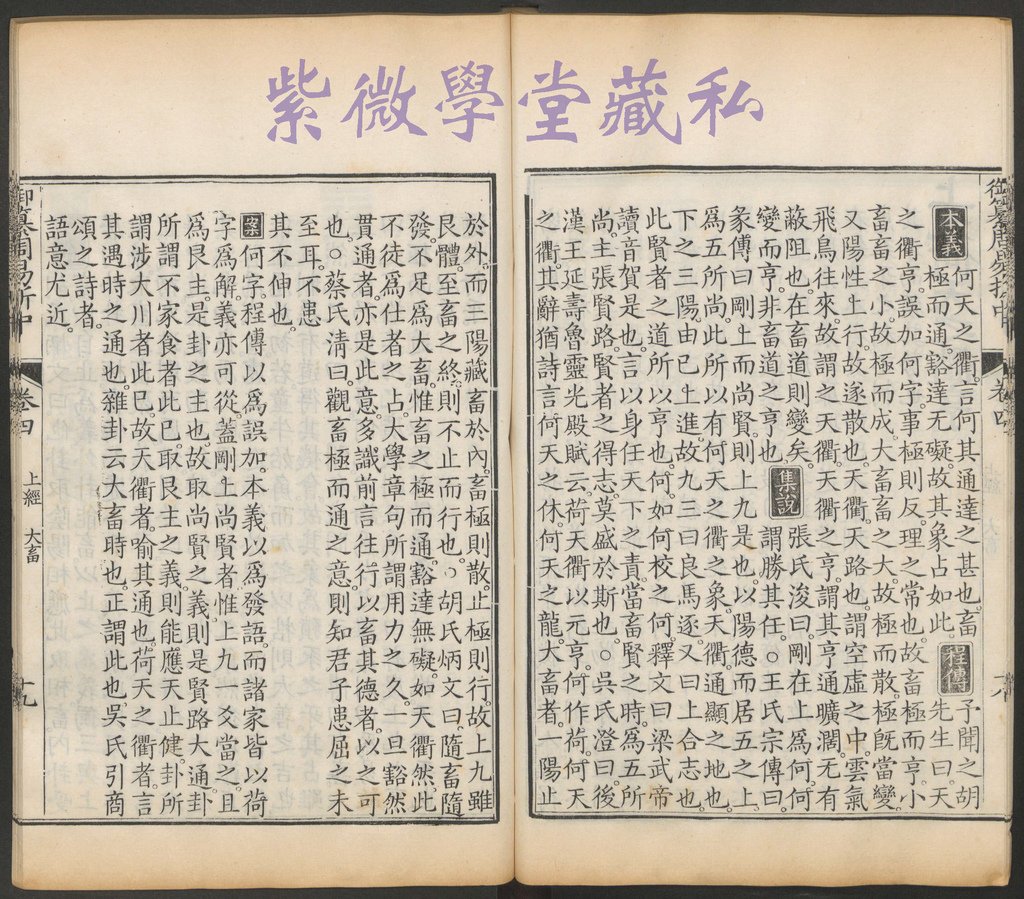 紫微學堂藏私
御纂周易折中 卷四 十八
本義 何天之衢。言何其通達之甚也。畜
極而通。豁達无礙。故其象占如此。
程傳 予聞之胡
先生曰。天
之衢亨。誤加何字。事極則反。理之常也。故畜極而亨。小
畜。畜之小。故極而成。大畜。畜之大。故極而散。極旣當變。
又陽性上行。故遂散也。天衢。天路也。謂空虛之中。雲氣
飛鳥往來。故謂之天衢。天衢之亨。謂其亨通曠闊。无有
蔽阻也。在畜道則變矣。
變而亨。非畜道之亨也。
集說 張氏浚曰。剛在上爲何。何
謂勝其任。○王氏宗傳曰。
彖傳曰。剛上而尚賢。則上九是也。以陽德而居五之上。
爲五所尚。此所以有何天之衢之象。天衢通顯之地也。
下之三陽。由已上進。故九三曰良馬逐。又曰上合志也。
此賢者之道所以亨也。何。如何校之何。釋文曰。梁武帝
讀音賀是也。言以身任天下之責。當畜賢之時。爲五所
尚。主張賢路。賢者之得志。莫盛於斯也。○吳氏澄曰。後
漢王延壽魯靈光殿賦云。荷天衢以元亨。何作荷。何天
之衢。其辭猶詩言何天之休。何天之龍。大畜者。一陽止
於外。而三陽藏畜於內。畜極則散。止極則行。故上九雖
艮體。至畜之終。則不止而行也。○胡氏炳文曰。隨畜隨
發。不足爲大畜。惟畜之極而通。豁達無礙。如天衢然。此
不徒爲仕者之占。大學章句所謂用力之久。一旦豁然
貫通者。亦是此意。多識前言往行。以畜其德者。以之可
也。○蔡氏淸曰。觀畜極而通之之意。則知君子患屈之未
至耳。不患
其不伸也。
案 何字。程傳以爲誤加。本義以爲發語。而諸家皆以荷
字爲解。義亦可從。蓋剛上尚賢者。惟上九一爻當之。且
爲艮主。是卦之主也。故取尚賢之義。則是賢路大通。卦
所謂不家食者此已。取艮主之義。則能應天止健。卦所
謂涉大川者此已。故天衢者。喻其通也。荷天之衢者。言
其遇時之通也。雜卦云。大畜時也。正謂此也。吳氏引商
頌之詩者。
語意尤近。
御纂周易折中 卷四 上經 大畜 十九